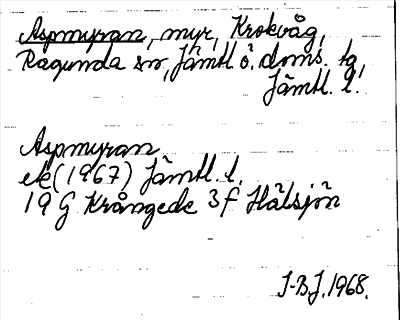 Aspmyran, myr, Krokvåg,
Ragunda sn, Jämtl. ö. doms. tg,
Jämtl. l.
Aspmyran
ek (1967) Jämtl. l.
19 G Krångede 3f Hälsjön
J-BJ. 1968.